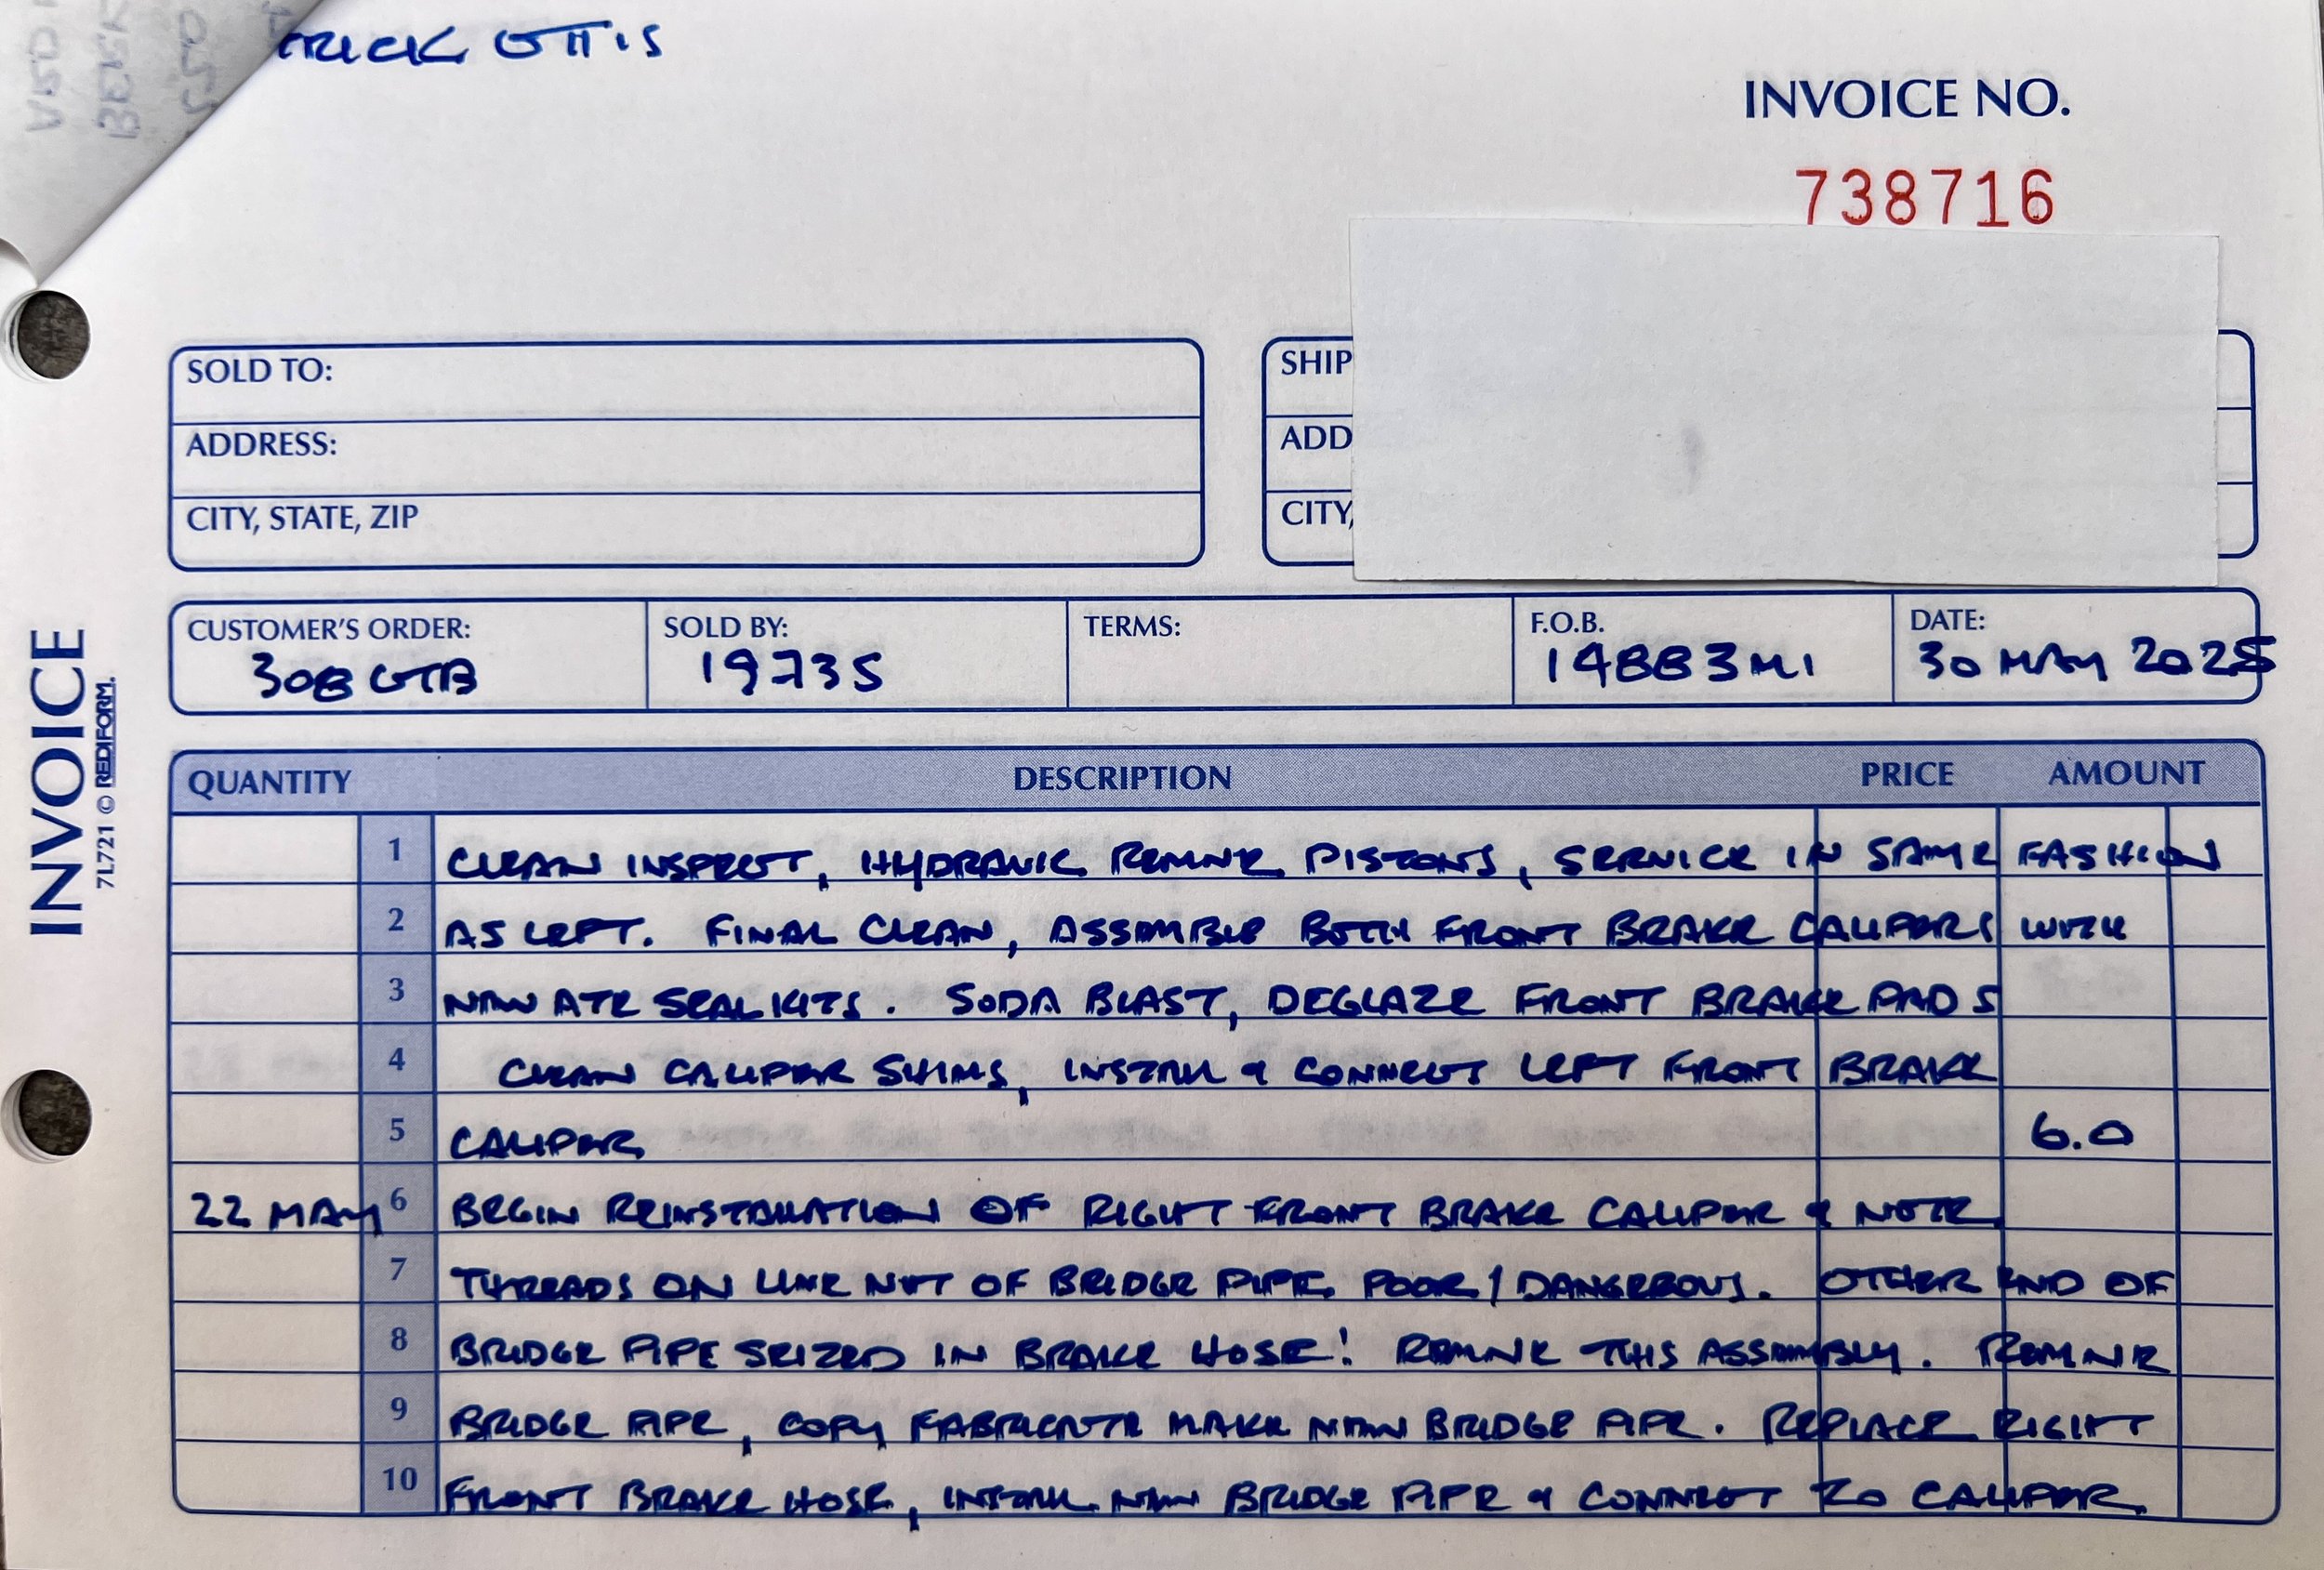 TRICK OTTIS
INVOICE NO.
738716
SOLD TO:
ADDRESS:
CITY, STATE, ZIP
SHIP
ADD
CITY,
CUSTOMER'S ORDER:
308 GTB
SOLD BY:
19735
TERMS:
F.O.B.
14883 MI
DATE:
30 MAY 2025
INVOICE
7L721 © REDIFORM.
QUANTITY DESCRIPTION PRICE AMOUNT
1 CLEAN INSPECT, HYDRAULIC REMOVE PISTONS, SERVICE IN SAME FASHION
2 AS LEFT. FINAL CLEAN, ASSEMBLE BOTH FRONT BRAKE CALIPERS WITH
3 NEW ATE SEAL KITS. SODA BLAST, DEGLAZE FRONT BRAKE PADS
4 CLEAN CALIPER SHIMS, INSTALL & CONNECT LEFT FRONT BRAKE
5 CALIPER 6.0
22 MAY 6 BEGIN REINSTALLATION OF RIGHT FRONT BRAKE CALIPER & NOTE
7 THREADS ON LINE NUT OF BRIDGE PIPE POOR / DANGEROUS. OTHER END OF
8 BRIDGE PIPE SEIZED IN BRAKE HOSE! REMOVE THIS ASSEMBLY. REMOVE
9 BRIDGE PIPE, COPY FABRICATE MAKE NEW BRIDGE PIPE. REPLACE RIGHT
10 FRONT BRAKE HOSE, INSTALL NEW BRIDGE PIPE & CONNECT TO CALIPER.